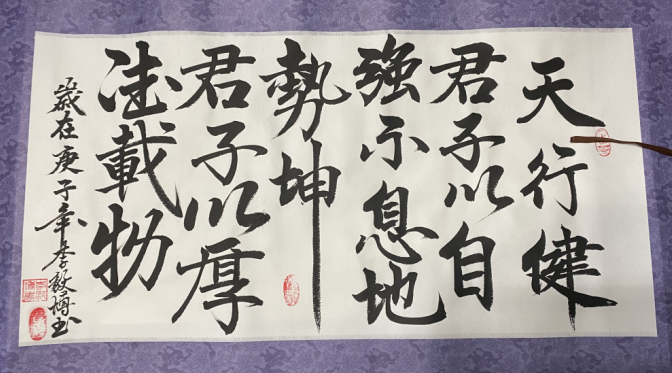 天行健
君子以自
強不息地
勢坤
君子以厚
德載物
歲在庚子年李毅博书